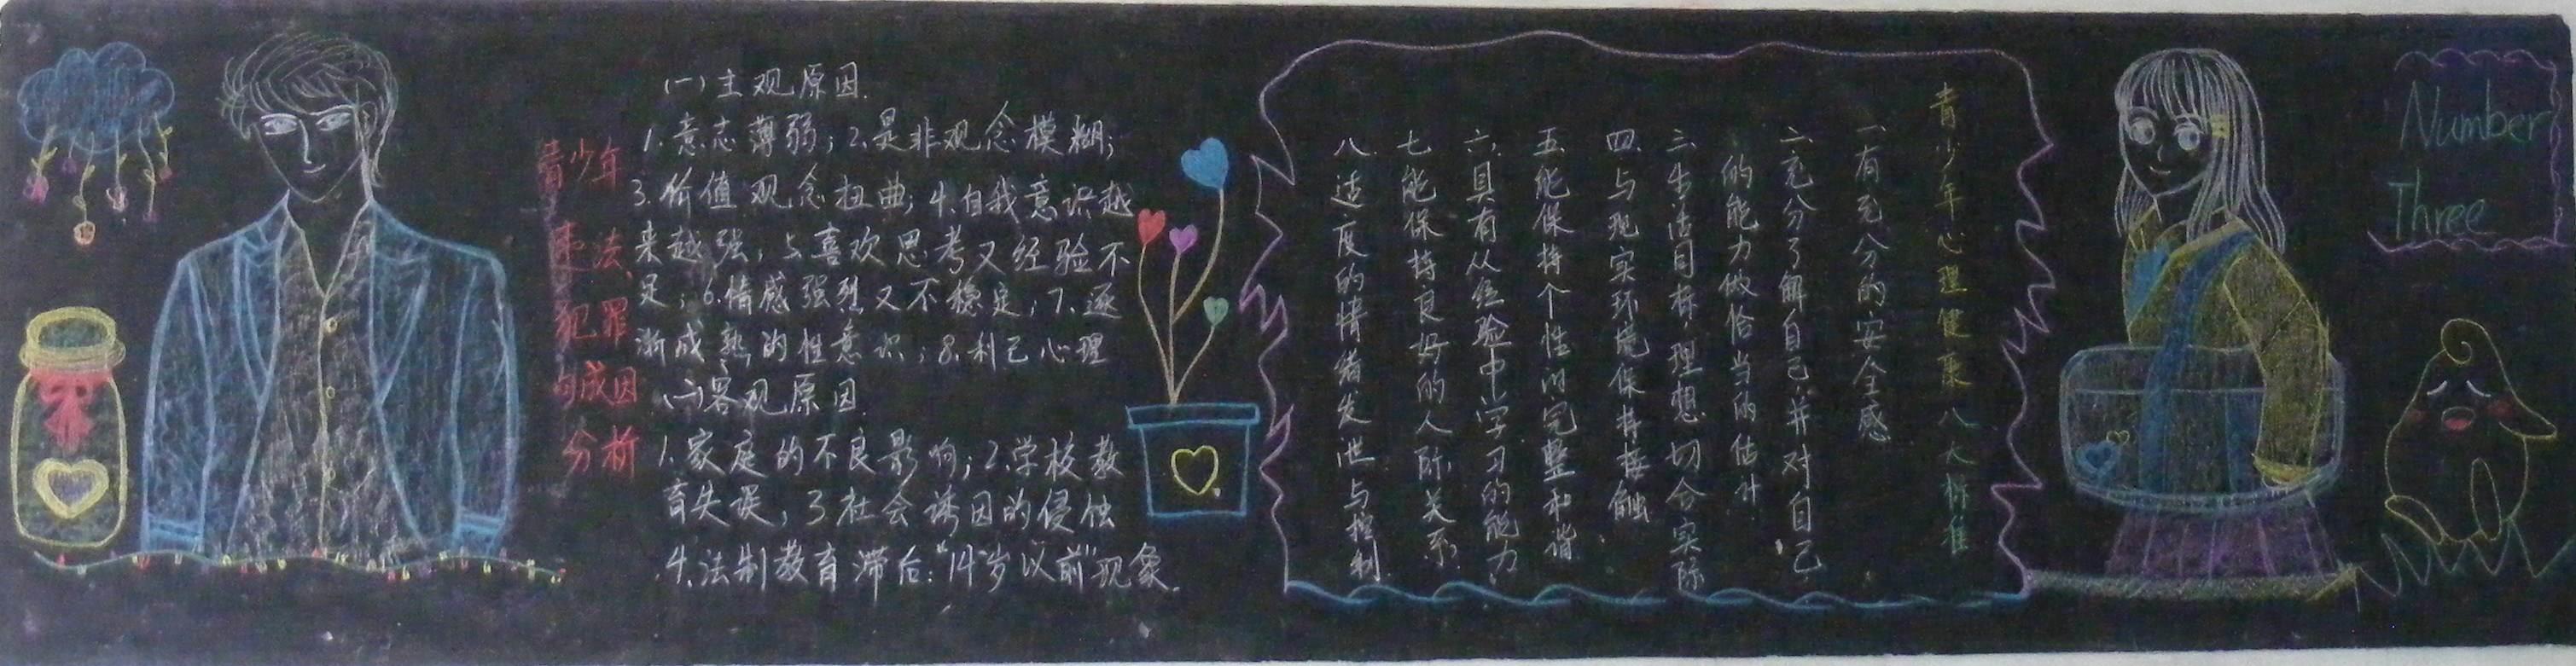 青少年
违法、
犯罪
的成因
分析
(一)主观原因.
1.意志薄弱;2.是非观念模糊;
3.价值观念扭曲;4.自我意识越
来越强;5.喜欢思考又经验不
足;6.情感强烈又不稳定;7.逐
渐成熟的性意识;8.利己心理
(二)客观原因.
1.家庭的不良影响;2.学校教
育失误;3.社会诱因的侵蚀
4.法制教育滞后:"14岁以前"现象.
青少年心理健康八大标准
一.有充分的安全感
二.充分了解自己,并对自己
的能力做恰当的估计
三.生活目标,理想切合实际
四.与现实环境保持接触
五.能保持个性的完整和谐
六.具有从经验中学习的能力
七.能保持良好的人际关系.
八.适度的情绪发泄与控制.
Number
Three